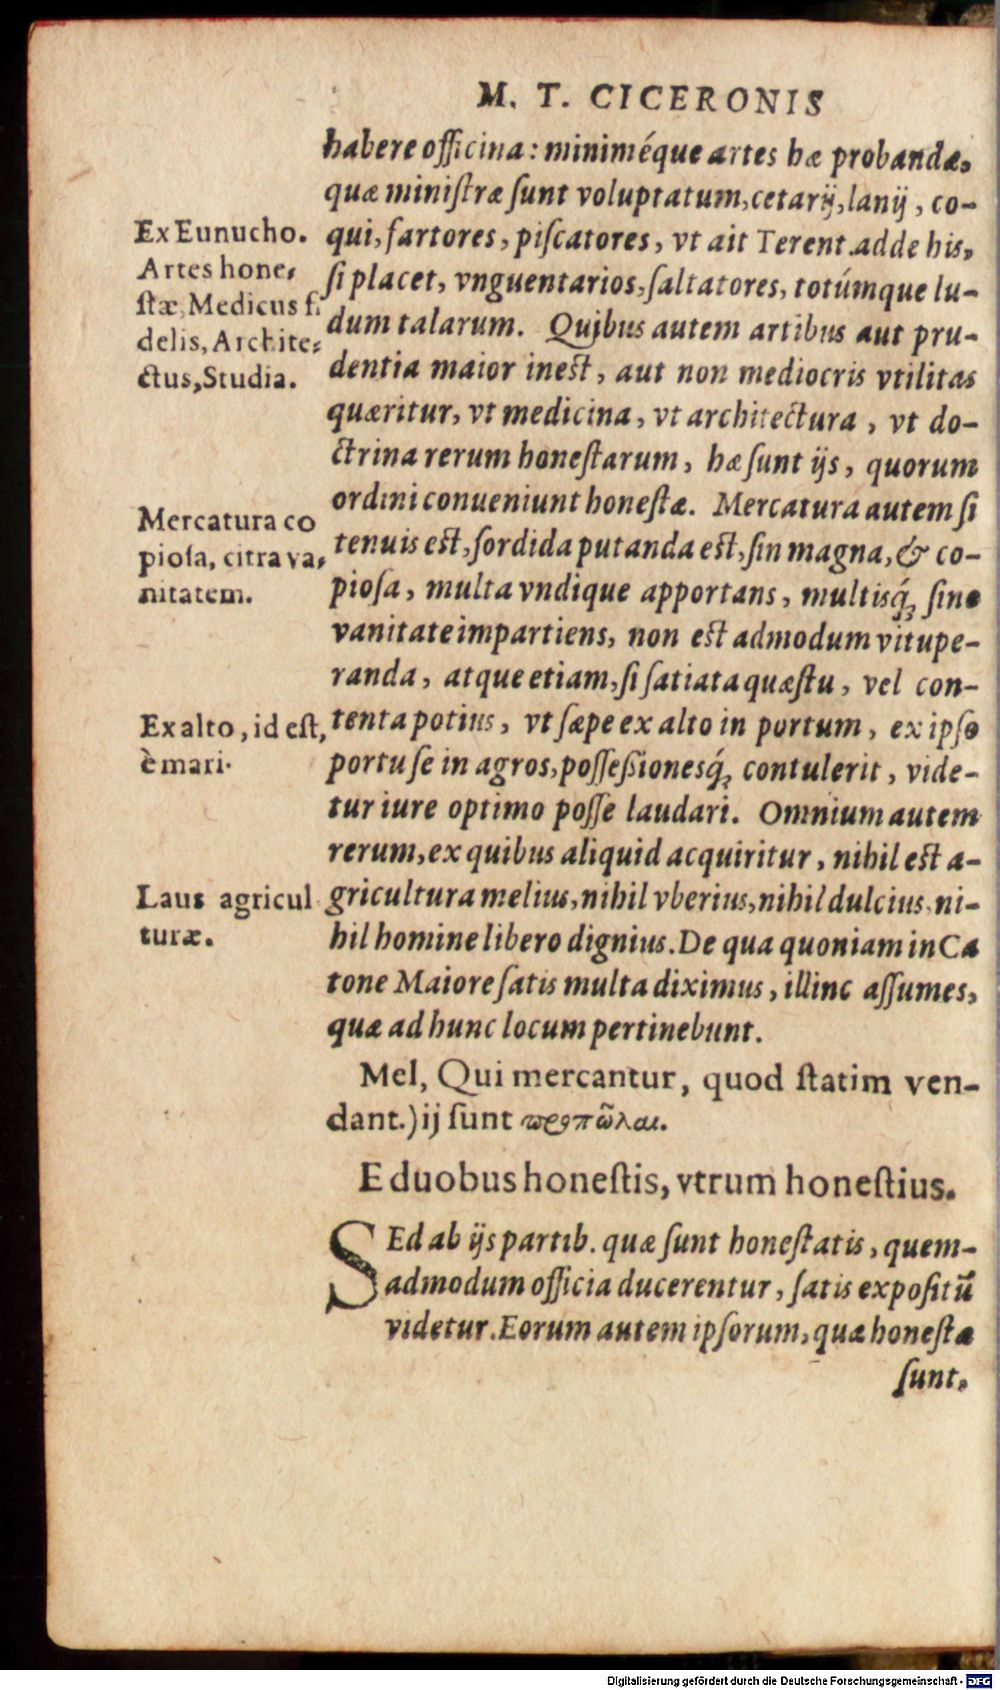 M. T. CICERONIS
habere officina: miniméque artes hæ probandæ,
quæ ministræ sunt voluptatum, cetarij, lanij, co-
qui, fartores, piscatores, vt ait Terent. adde his,
si placet, vnguentarios, saltatores, totúmque lu-
dum talarum. Quibus autem artibus aut pru-
dentia maior inest, aut non mediocris vtilitas
quæritur, vt medicina, vt architectura, vt do-
ctrina rerum honestarum, hæ sunt ijs, quorum
ordini conueniunt honestæ. Mercatura autem si
tenuis est, sordida putanda est, sin magna, & co-
piosa, multa vndique apportans, multisq́; sine
vanitate impartiens, non est admodum vitupe-
randa, atque etiam, si satiata quæstu, vel con-
tenta potius, vt sæpe ex alto in portum, ex ipso
portu se in agros, possessionesq́; contulerit, vide-
tur iure optimo posse laudari. Omnium autem
rerum, ex quibus aliquid acquiritur, nihil est a-
gricultura melius, nihil vberius, nihil dulcius, ni-
hil homine libero dignius. De qua quoniam in Ca
tone Maiore satis multa diximus, illinc assumes,
quæ ad hunc locum pertinebunt.
Ex Eunucho.
Artes hone-
stæ, Medicus fi
delis, Archite-
ctus, Studia.
Mercatura co
piosa, citra va-
nitatem.
Ex alto, id est,
è mari.
Laus agricul
turæ.
Mel, Qui mercantur, quod statim ven-
dant.) ij sunt προπῶλαι.
E duobus honestis, vtrum honestius.
SEd ab ijs partib. quæ sunt honestatis, quem-
admodum officia ducerentur, satis expositū
videtur. Eorum autem ipsorum, quæ honesta
sunt,
Digitalisierung gefördert durch die Deutsche Forschungsgemeinschaft - DFG